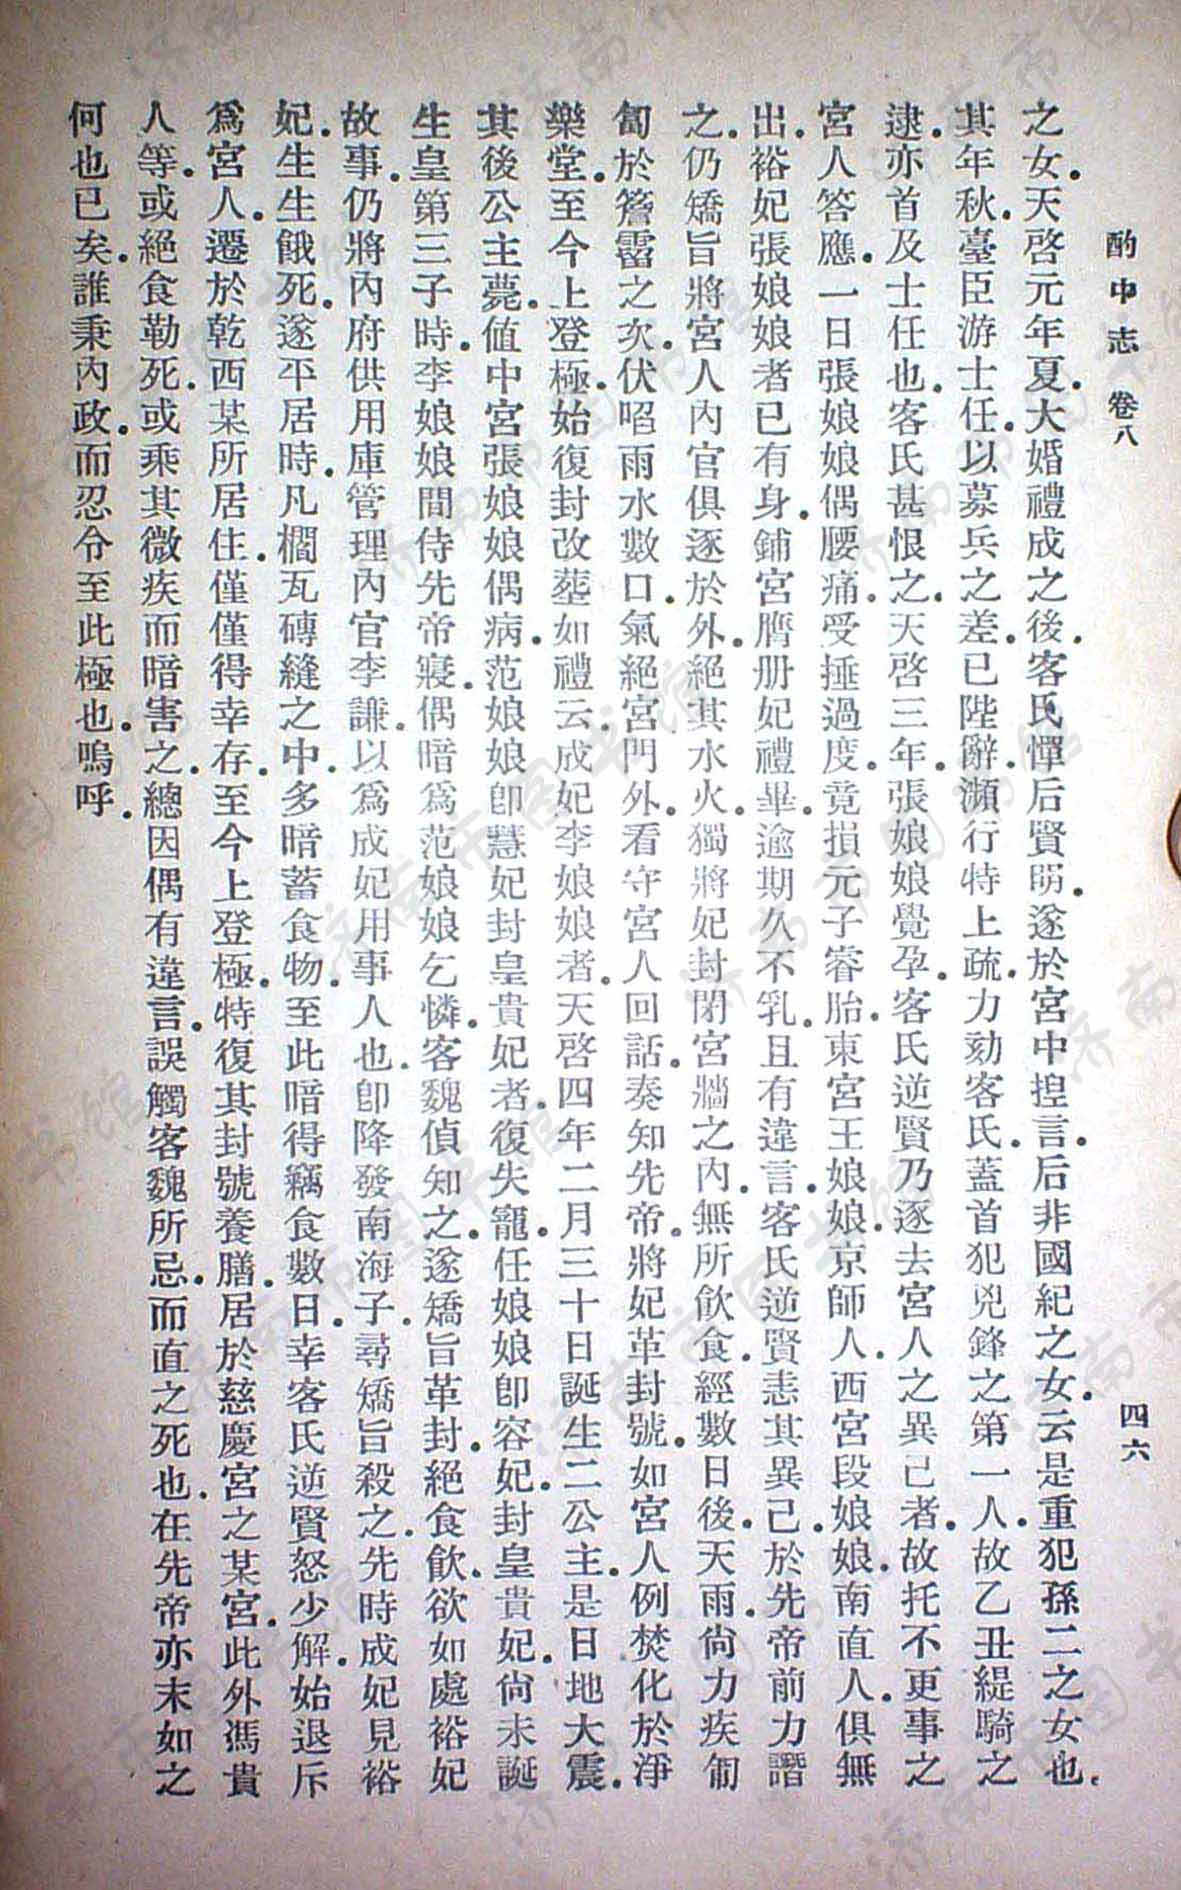 酌中志 卷八
四六
之女天啓元年夏大婚禮成之後客氏憚后賢明遂於宮中揑言后非國紀之女云是重犯孫二之女也
其年秋臺臣游士任以募兵之差已陛辭瀕行特上疏力劾客氏蓋首犯兇鋒之第一人故乙丑緹騎之
逮亦首及士任也客氏甚恨之天啓三年張娘娘覺孕客氏逆賢乃逐去宮人之異己者故托不更事之
宮人答應一日張娘娘偶腰痛受捶過度竟損元子睿胎東宮王娘娘京師人西宮段娘娘南直人俱無
出裕妃張娘娘者已有身鋪宮膺册妃禮畢逾期久不乳且有違言客氏逆賢恚其異己於先帝前力譖
之仍矯旨將宮人內官俱逐於外絕其水火獨將妃封閉宮牆之內無所飲食經數日後天雨尚力疾匍
匐於簷霤之次伏㗖雨水數口氣絕宮門外看守宮人回話奏知先帝將妃革封號如宮人例焚化於淨
樂堂至今上登極始復封改葬如禮云成妃李娘娘者天啓四年二月三十日誕生二公主是日地大震
其後公主薨值中宮張娘娘偶病范娘娘卽慧妃封皇貴妃者復失寵任娘娘卽容妃封皇貴妃尚未誕
生皇第三子時李娘娘間侍先帝寢偶暗爲范娘娘乞憐客魏偵知之遂矯旨革封絕食飲欲如處裕妃
故事仍將內府供用庫管理內官李謙以爲成妃用事人也卽降發南海子尋矯旨殺之先時成妃見裕
妃生生餓死遂平居時凡櫚瓦磚縫之中多暗蓄食物至此暗得竊食數日幸客氏逆賢怒少解始退斥
爲宮人遷於乾西某所居住僅僅得幸存至今上登極特復其封號養膳居於慈慶宮之某宮此外馮貴
人等或絕食勒死或乘其微疾而暗害之總因偶有違言誤觸客魏所忌而直之死也在先帝亦末如之
何也已矣誰秉內政而忍令至此極也嗚呼